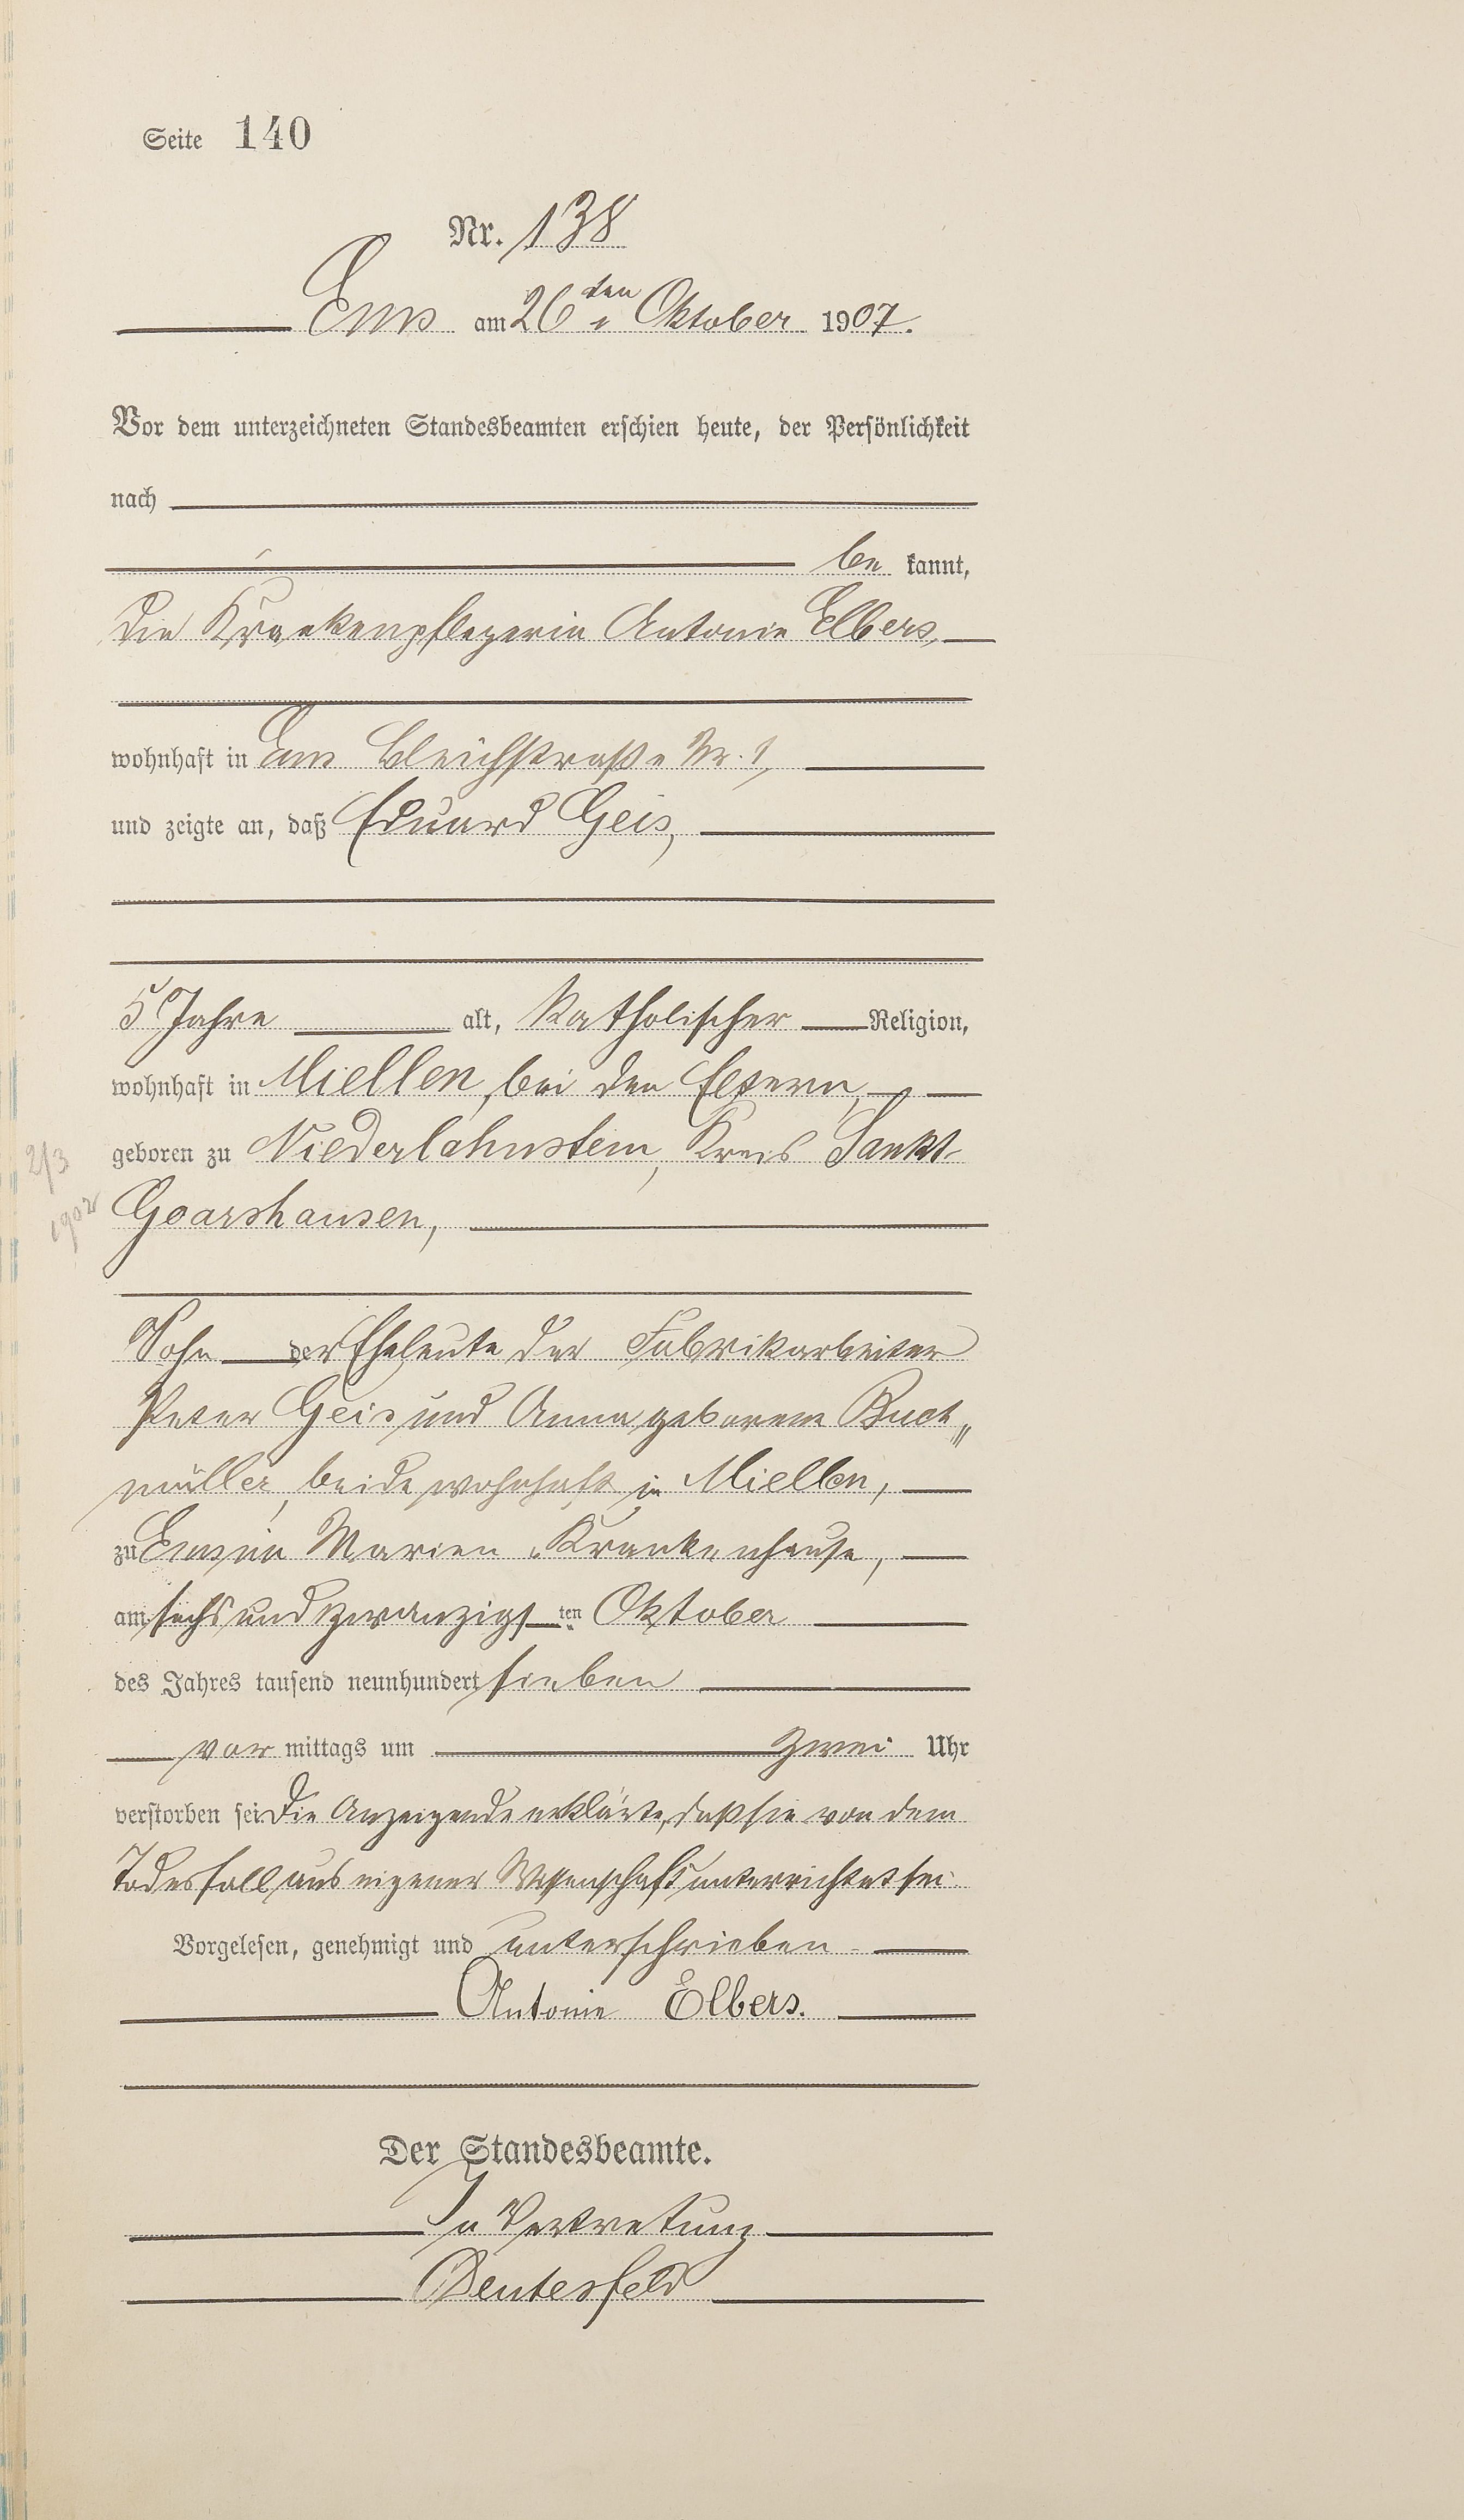 Seite 140
Nr. 138
Ems am 26ten Oktober 1907.
Vor dem unterzeichneten Standesbeamten erschien heute, der Persönlichkeit
nach
be kannt,
die Krankenpflegerin Antonie Elbers,
wohnhaft in Ems Bleichstraße Nr. 1,
und zeigte an, daß Eduard Geis,
5 Jahre alt, katholischer Religion,
wohnhaft in Miellen, bei den Eltern,
geboren zu Niederlahnstein, Kreis Sankt-
2/3
1902
Goarshausen,
Sohn der Eheleute der Fabrikarbeiter
Peter Geis und Anna geborene Buch„
müller, beide wohnhaft in Miellen,
zu Ems im Marien-Krankenhause,
am sechs und zwanzigsten Oktober
des Jahres tausend neunhundert sieben
vor mittags um zwei Uhr
verstorben sei. Die Anzeigende erklärte, daß sie von dem
Todesfall aus eigener Wissenschaft unterrichtet sei.
Vorgelesen, genehmigt und unterschrieben
Antonie Elbers.
Der Standesbeamte.
In Vertretung